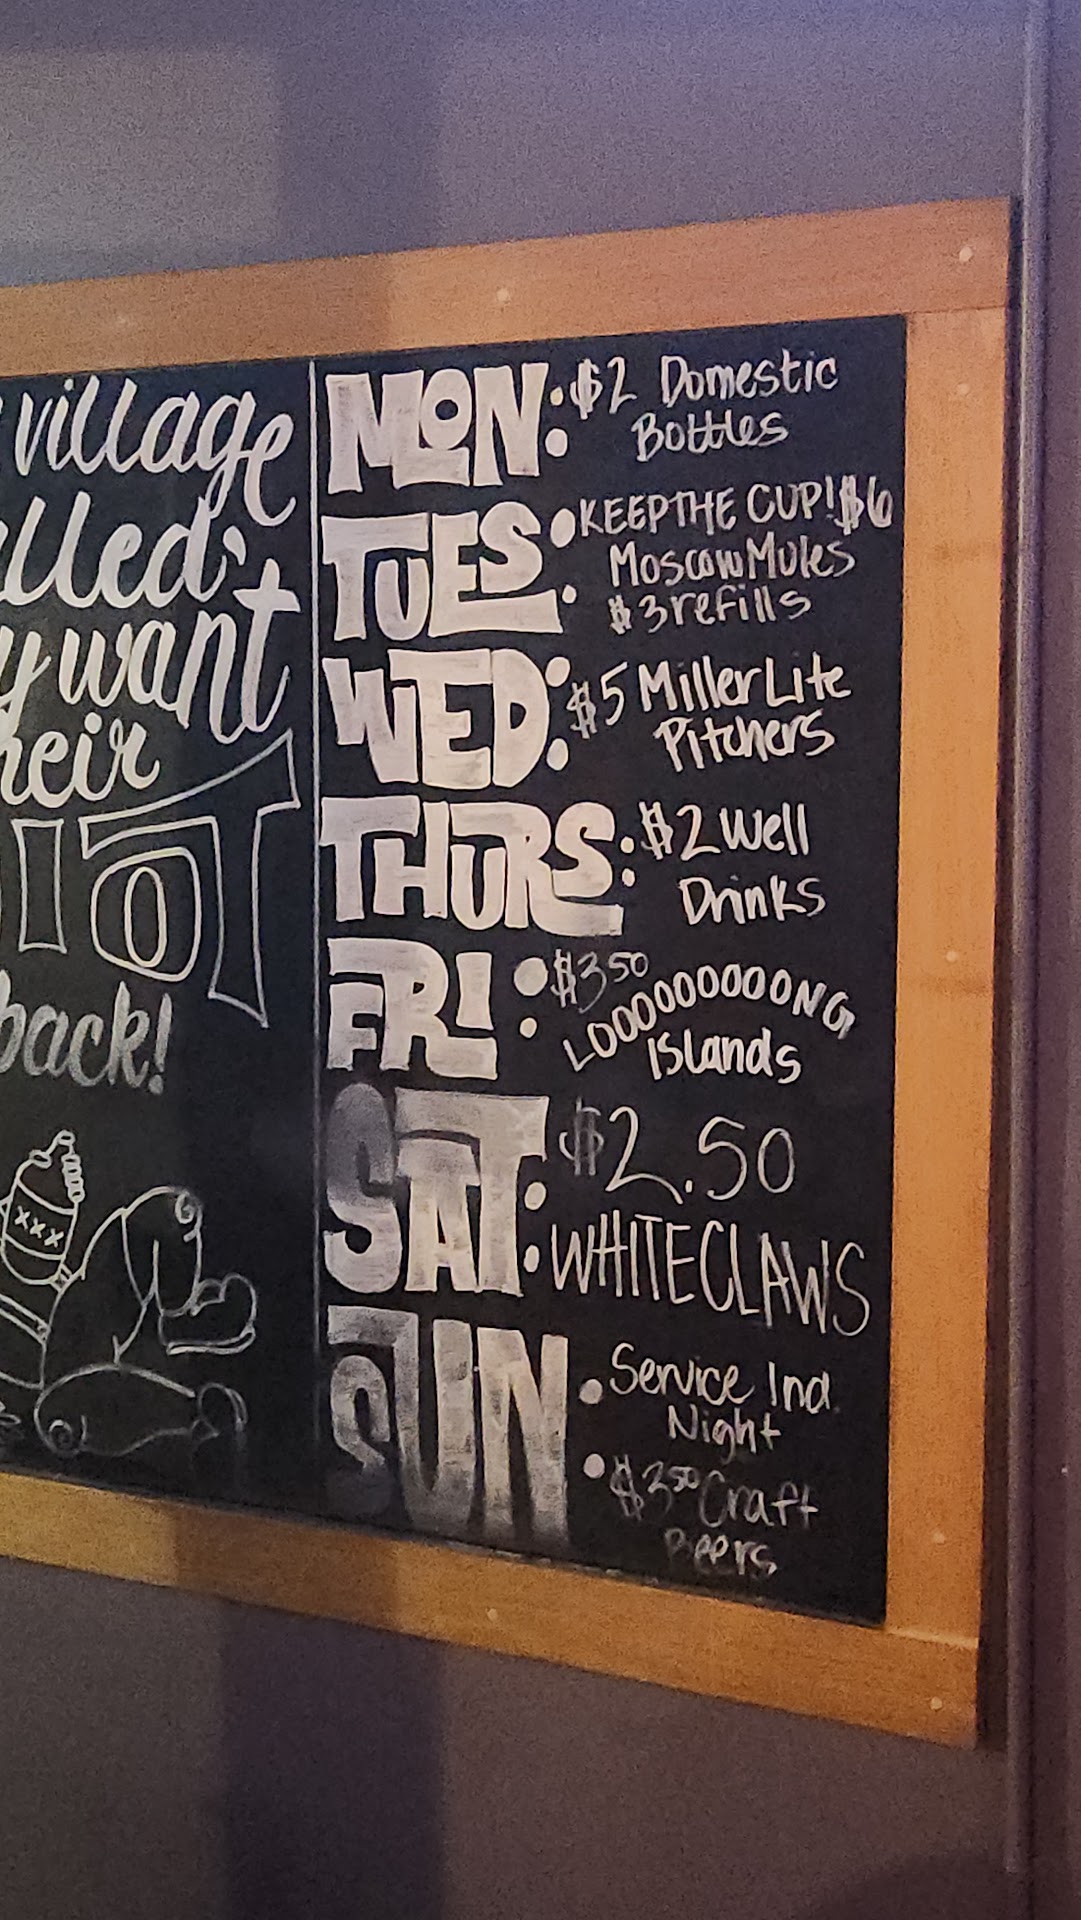 village
alled:
y want
heir
IOT
back!
XXX
MON: $2 Domestic
Bottles
TUES: KEEP THE CUP! $6
Moscow Mules
$3 refills
WED: $5 Miller Lite
Pitchers
THURS: $2 Well
Drinks
FRI: $3.50
LOOOOOOOOONG
Islands
SAT: $2.50
WHITECLAWS
SUN: Service Ind.
Night
$3.50 Craft
Beers